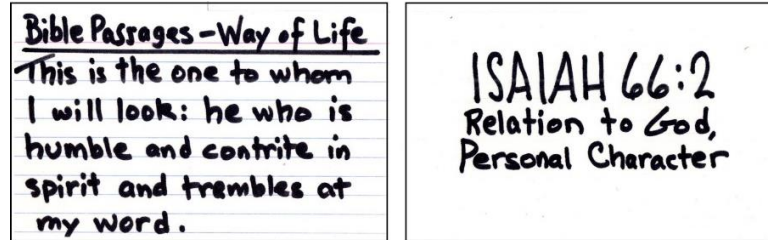 Bible Passages - Way of Life
This is the one to whom
I will look: he who is
humble and contrite in
spirit and trembles at
my word.
ISAIAH 66:2
Relation to God,
Personal Character